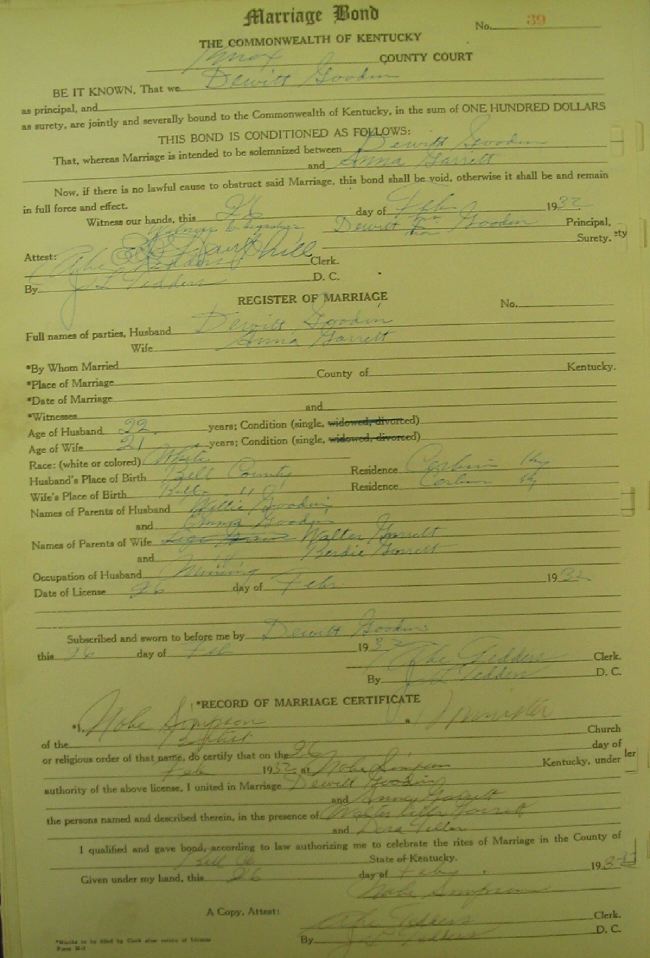 Marriage Bond
No. 39
THE COMMONWEALTH OF KENTUCKY
Knox COUNTY COURT
BE IT KNOWN, That we Dewitt Goodin
as principal, and
as surety, are jointly and severally bound to the Commonwealth of Kentucky, in the sum of ONE HUNDRED DOLLARS
THIS BOND IS CONDITIONED AS FOLLOWS:
That, whereas Marriage is intended to be solemnized between Dewitt Goodin
and Anna Garrett
Now, if there is no lawful cause to obstruct said Marriage, this bond shall be void, otherwise it shall be and remain
in full force and effect.
Witness our hands, this 26 day of Feb 1932
Dewitt Goodin Principal,
Surety.
Attest: Clerk.
By D. C.
REGISTER OF MARRIAGE
No.
Full names of parties, Husband Dewitt Goodin
Wife Anna Garrett
*By Whom Married
*Place of Marriage County of Kentucky.
*Date of Marriage
*Witnesses and
Age of Husband 22 years; Condition (single, widowed, divorced)
Age of Wife 21 years; Condition (single, widowed, divorced)
Race: (white or colored) White
Husband's Place of Birth Bell County Residence Corbin Ky
Wife's Place of Birth Residence Corbin Ky
Names of Parents of Husband Willie Goodin
and Goodin
Names of Parents of Wife Walter Garrett
and Berdie Garrett
Occupation of Husband Mining
Date of License 26 day of Feb 1932
Subscribed and sworn to before me by Dewitt Goodin
this 26 day of Feb 1932
Clerk.
By D. C.
*RECORD OF MARRIAGE CERTIFICATE
*I, Nobe Simpson a minister
of the Baptist Church
or religious order of that name, do certify that on the 26 day of
Feb 1932 at Nobe Simpson Kentucky, under
authority of the above license, I united in Marriage Dewitt Goodin
and Garrett
the persons named and described therein, in the presence of Walter Garrett
and
I qualified and gave bond, according to law authorizing me to celebrate the rites of Marriage in the County of
Bell Co State of Kentucky.
Given under my hand, this 26 day of Feby 1932
Nobe Simpson
A Copy, Attest:
Clerk.
By D. C.